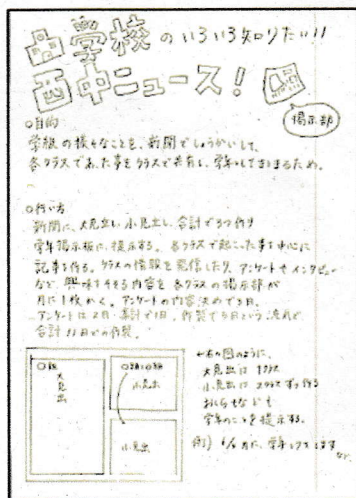 学校のいろいろ知りたい!!
西中ニュース!
掲示部
○目的
学級の様々なことを、新聞でしょうかいして、
各クラスであった事をクラスで共有し、学年としてまとまるため。
○行い方
新聞に、大見出し、小見出し、合計で3つ作り
学年掲示板に、提示する。各クラスで起こった事を中心に
記事を作る。クラスの情報を発信したり、アンケートやインタビュー
など、興味をそそる内容を各クラスの掲示部が
月に1枚かく。アンケートの内容決めで3日、
アンケートは2日・集計で1日、作製で5日という流れで
合計11日での作製。
大見出
小見出
小見出
大見出は1クラス
小見出は2クラスずつ作る
おしらせなども
学年のことを提示する。